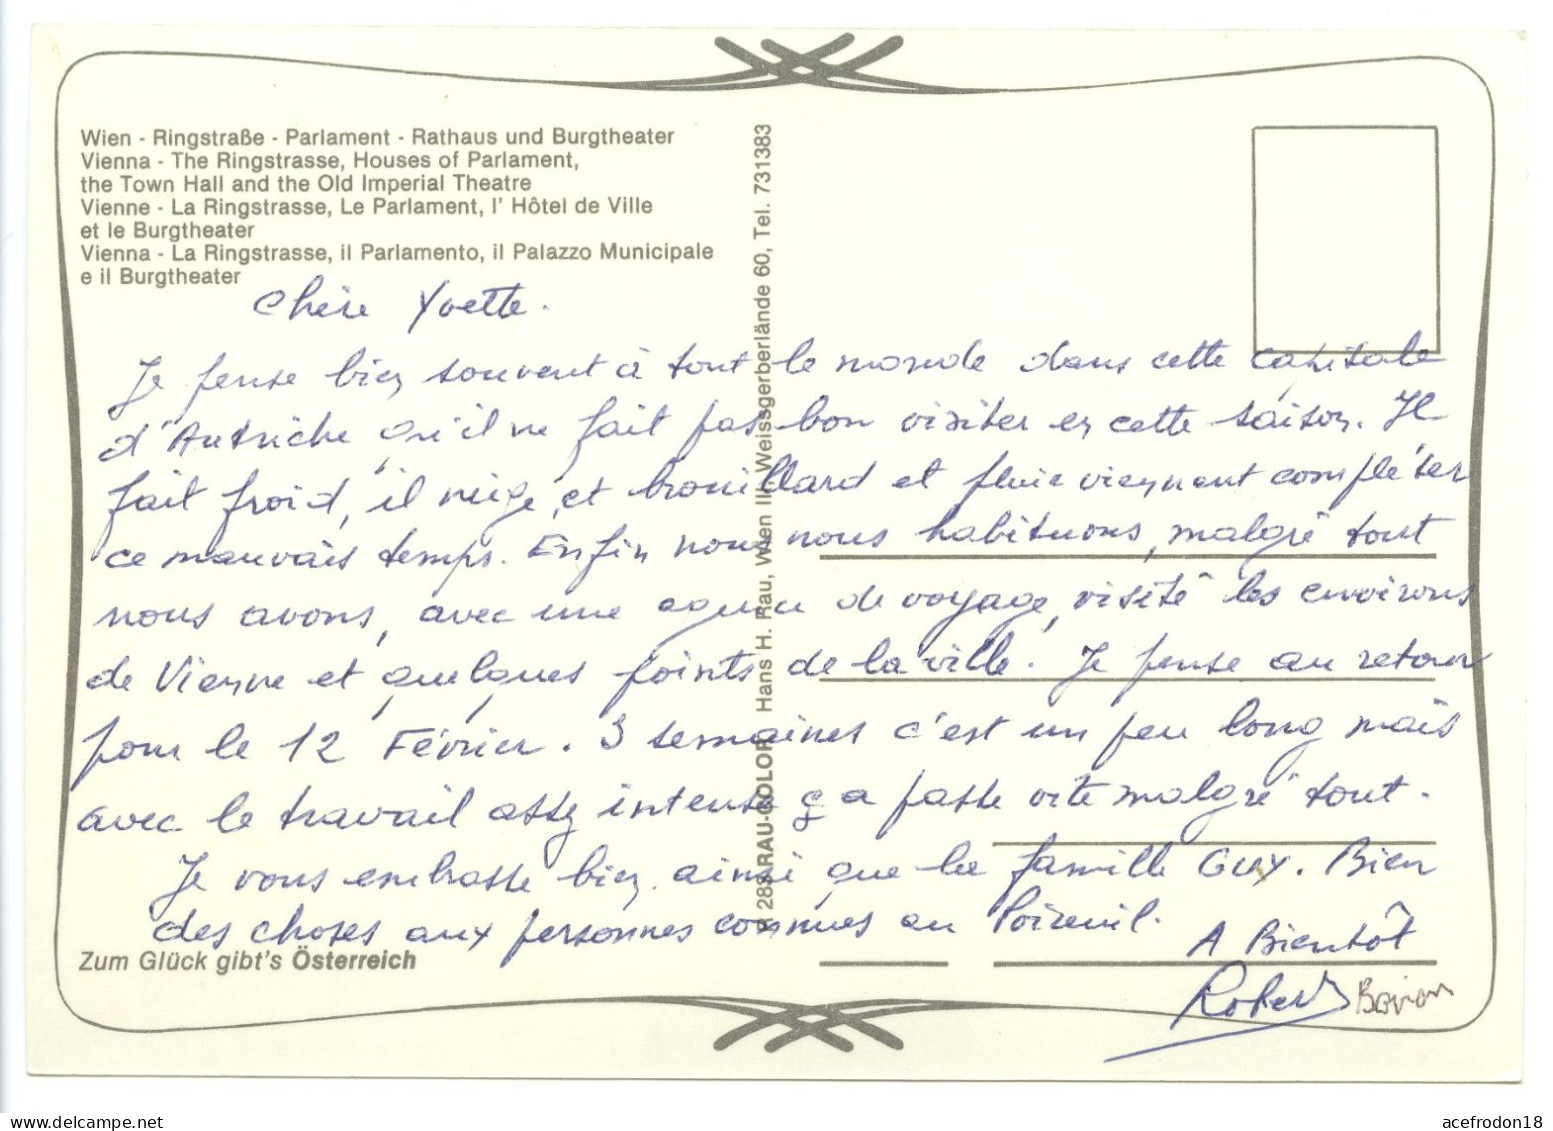 Wien - Ringstraße - Parlament - Rathaus und Burgtheater
Vienna - The Ringstrasse, Houses of Parlament,
the Town Hall and the Old Imperial Theatre
Vienne - La Ringstrasse, Le Parlament, l' Hôtel de Ville
et le Burgtheater
Vienna - La Ringstrasse, il Parlamento, il Palazzo Municipale
e il Burgtheater
Chère Yvette.
Je pense bien souvent à tout le monde dans cette capitale
d'Autriche qu'il ne fait pas bon visiter en cette saison. Il
fait froid, il neige, et brouillard et pluie viennent compléter
ce mauvais temps. Enfin nous nous habituons, malgré tout
nous avons, avec une agence de voyage, visité les environs
de Vienne et quelques points de la ville. Je pense au retour
pour le 12 Février. 3 semaines c'est un peu long mais
avec le travail assez intense ça passe vite malgré tout.
Je vous embrasse bien ainsi que la famille GUY. Bien
des choses aux personnes connues au
A Bientôt
Robert
Zum Glück gibt's Österreich
283 RAU-COLOR Hans H. Rau, Wien III, Weissgerberlände 60, Tel. 731383
acefrodon18